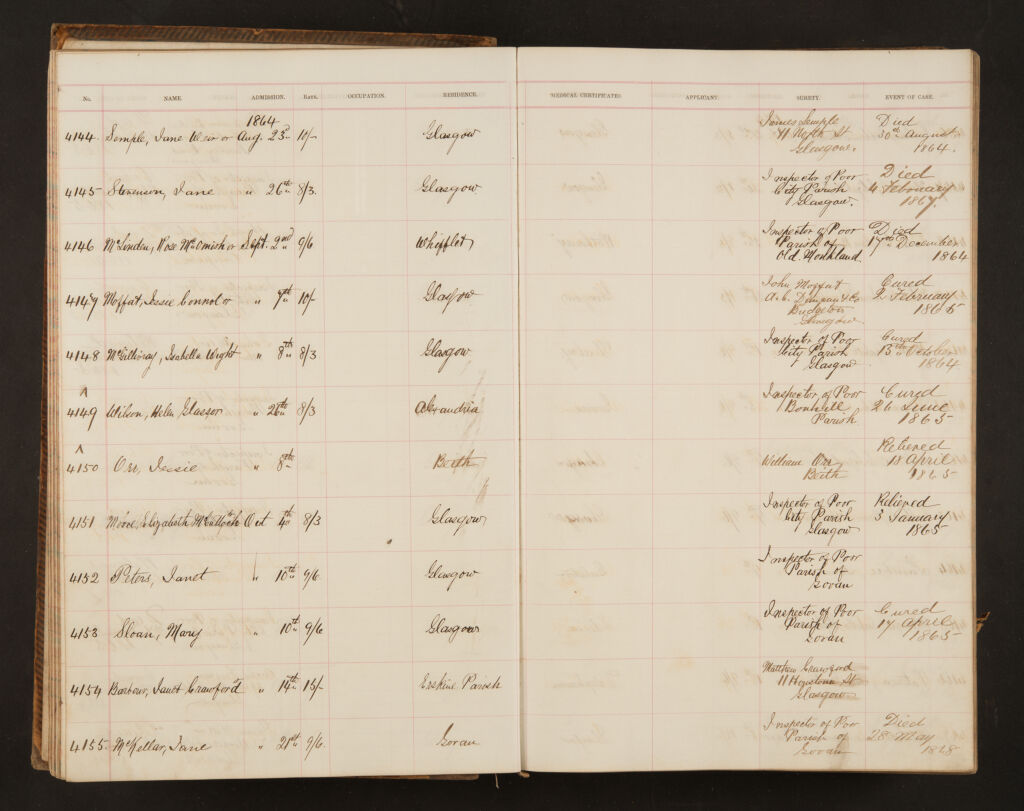 No. NAME. ADMISSION. RATE. OCCUPATION. RESIDENCE. MEDICAL CERTIFICATES. APPLICANT. SURETY. EVENT OF CASE.
1864
4144 Semple, Jane Weir or Aug. 23rd 10/- Glasgow James Semple Died
71 North St 30th August
Glasgow. 1864.
4145 Stevenson, Jane " 26th 8/3. Glasgow Inspector of Poor Died
City Parish 4 February
Glasgow. 1867.
4146 McLinden, Rose McOmish or Sept. 2nd 9/6 Whifflet Inspector of Poor Died
Parish of 17th December
Old Monkland. 1864
4147 Moffat, Jessie Connol or " 7th 10/- Glasgow John Moffat Cured
2 February
Bridgeton 1865
Glasgow
4148 McGillivray, Isabella Wright " 8th 8/3 Glasgow Inspector of Poor Cured
City Parish 13th October
Glasgow 1864
4149 Wilson, Helen Glasgor " 26th 8/3 Alexandria Inspector of Poor Cured
Bonhill 26 June
Parish 1865
4150 Orr, Jessie " 8th Beith William Orr Relieved
Beith 18 April
1865
4151 Moore, Elizabeth McCulloch Oct 4th 8/3 Glasgow Inspector of Poor Relieved
City Parish 3 January
Glasgow 1865
4152 Peters, Janet " 10th 9/6 Glasgow Inspector of Poor
Parish of
Govan
4153 Sloan, Mary " 10th 9/6 Glasgow Inspector of Poor Cured
Parish of 17 April
Govan 1865
4154 Barbour, Janet Crawford " 14th 15/- Erskine Parish Matthew Crawford
11 Houston St
Glasgow
4155 McKellar, Jane " 21st 9/6. Govan Inspector of Poor Died
Parish of 28 May
Govan 1868